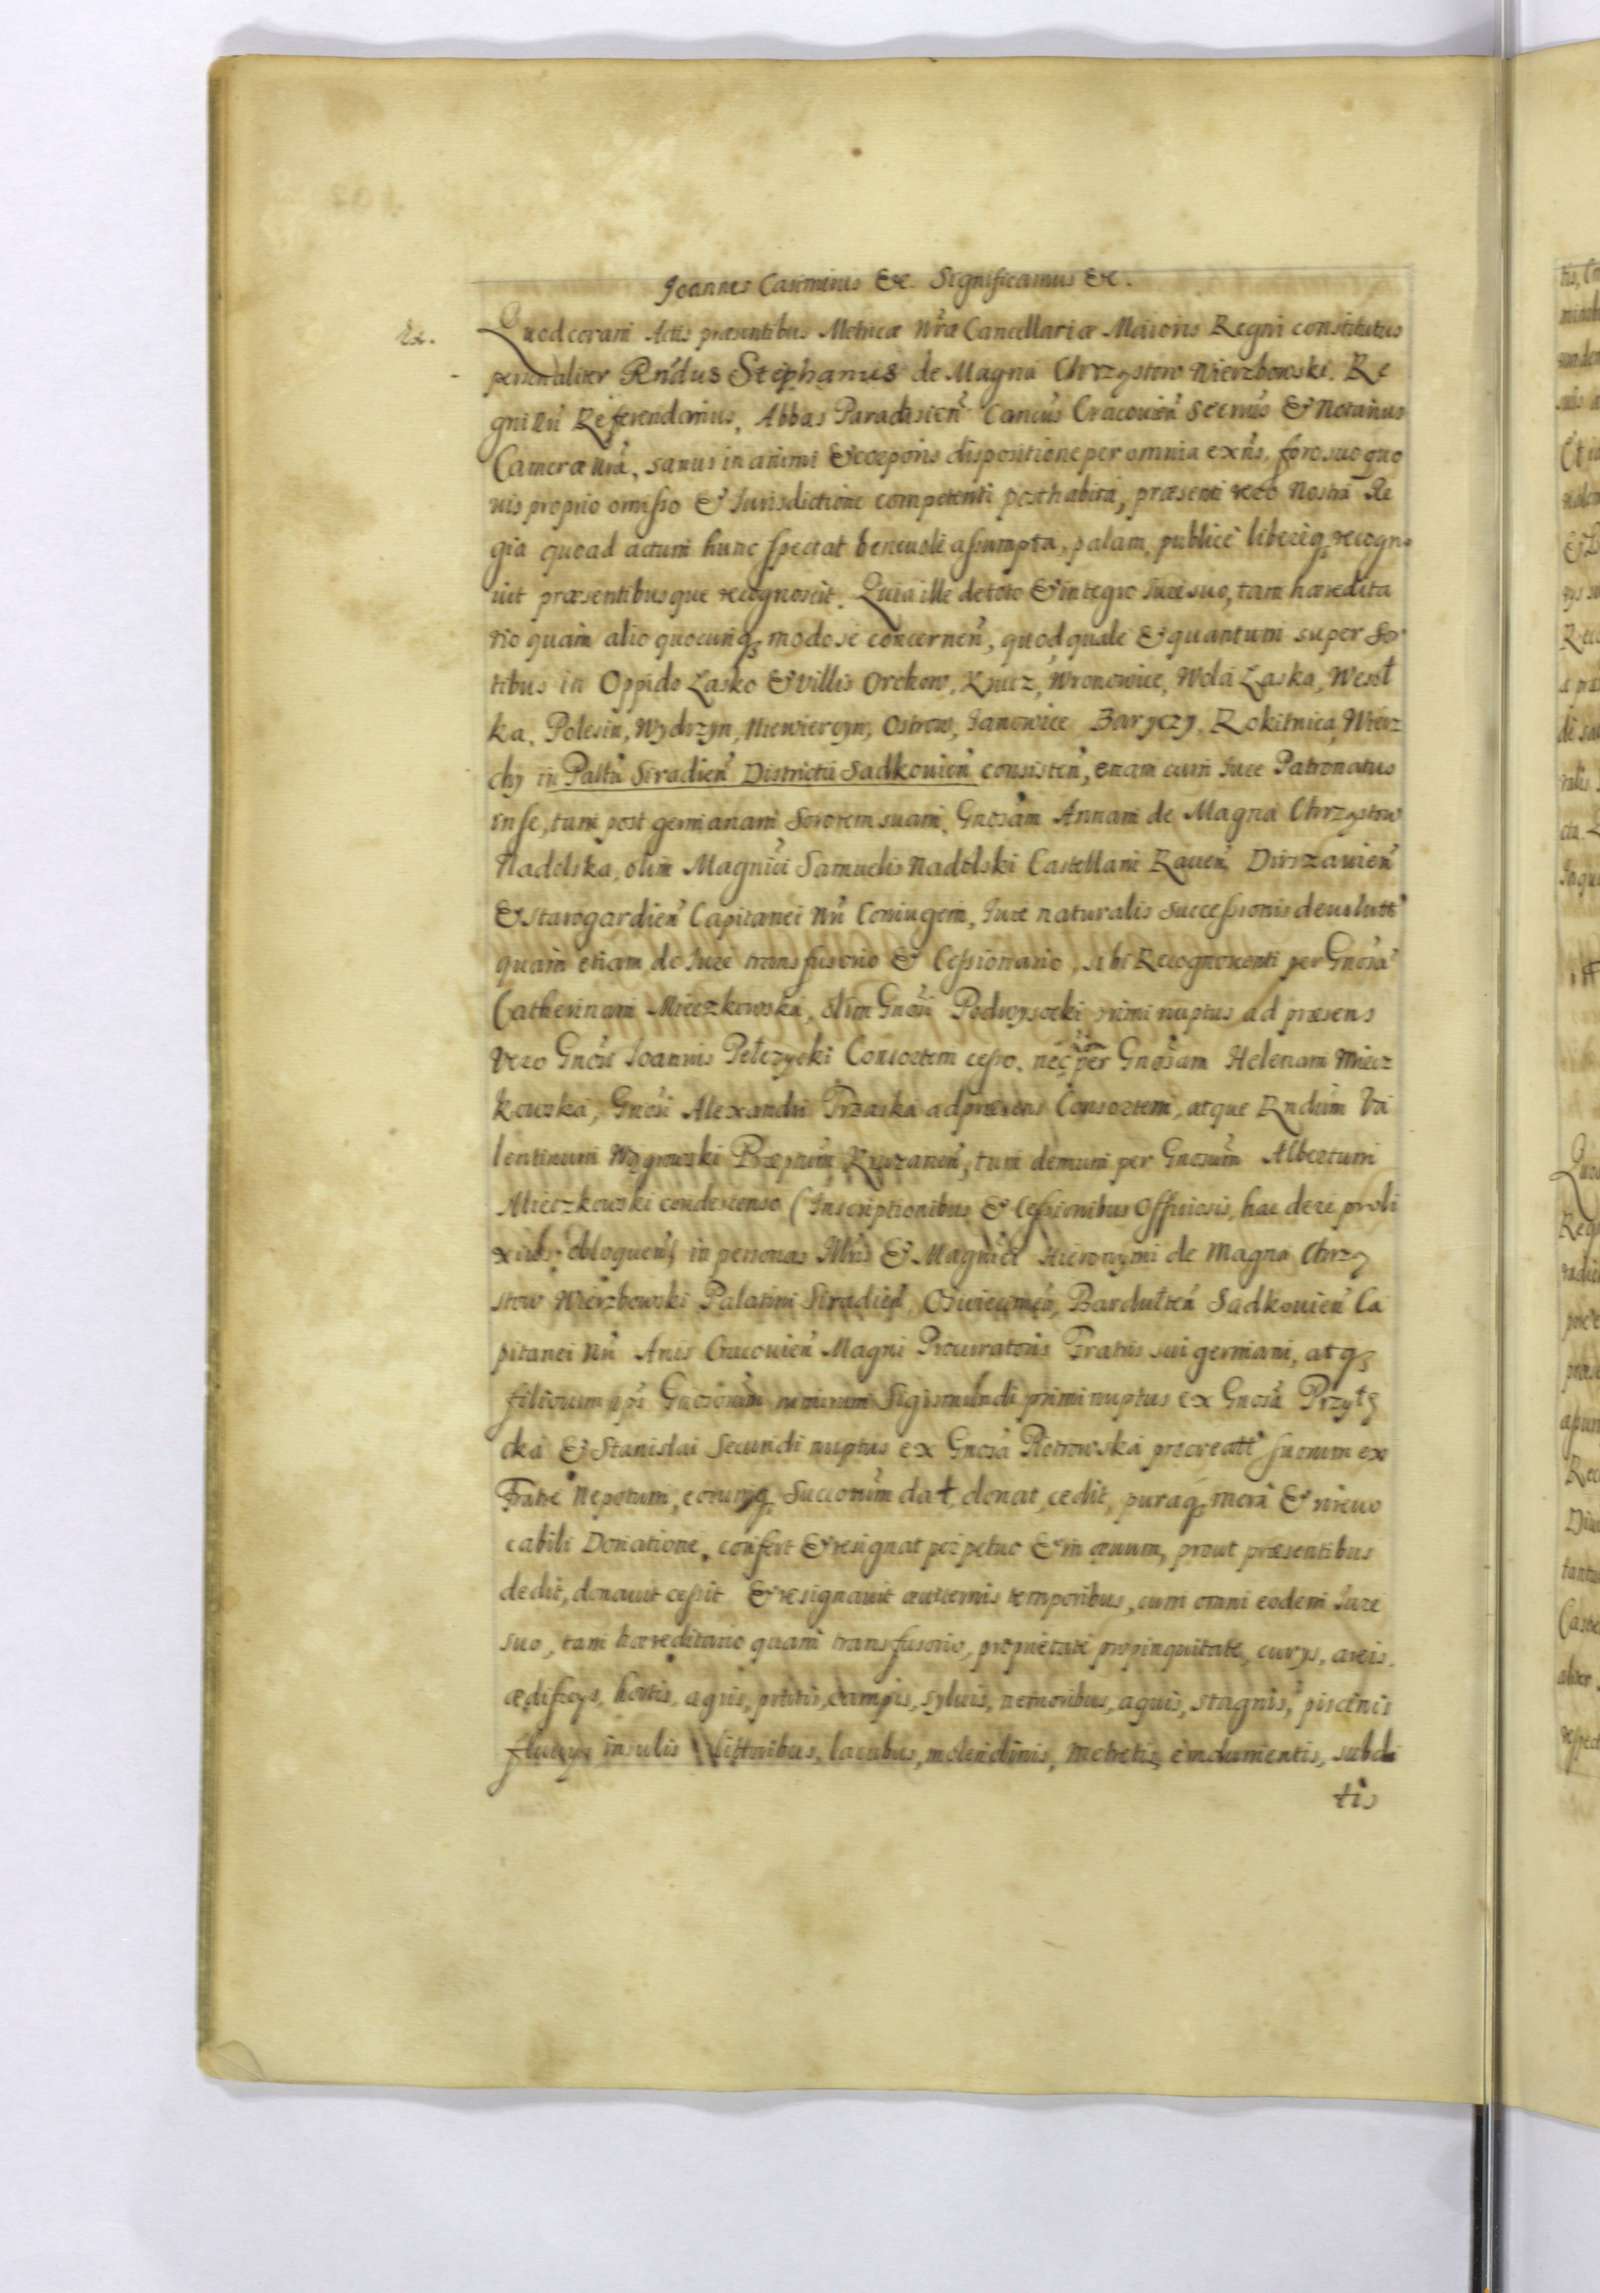 Joannes Casimirus &c. Significamus &c.
Ex.
Quod coram Actis præsentibus Metricæ Nræ Cancellariæ Maioris Regni constitutus
personaliter Rńdus Stephanus de Magna Chrzystow Wierzbowski. Re
gni Nri Referendarius, Abbas Paradisień Cancus Cracouień Secrius & Notarius
Cameræ Nræ, sanus in animi & corporis dispositione per omnia exńs, foro suo quo
uis proprio omisso & Iurisdictione competenti posthabita, præsenti vero Nostra Re
gia quoad actum hunc spectat beneuole assumpta, palam, publice libereq3 recogno
uit præsentibusque recognoscit. Quia ille de toto & integro Iure suo, tam hæredita
rio quam alio quocunq3 modo se concerneń, quod quale & quantum super Sor
tibus in Oppido Lasko & Villis Orchow, Krucz, Wronowice, Wola Laska, Wesoł
ka, Polesin, Wydrzyn, Niewiercyn, Ostrow, Janowice Baryczy, Rokitnica, Wierz
chy in Paltu Siradień Districtu Sadkouień consisteń, etiam cum Iure Patronatus
in se, tum post germanam Sororem suam, Gnosam Annam de Magna Chrzystow
Nadolska, olim Magnici Samuelis Nadolski Castellani Raueń, Dirszauień
& Starogardień Capitanei Nri Coniugem, Iure naturalis successionis deuolutt
quam etiam de Iure transfusorio & Cessionario, sibi Recognoscenti per Gnosa
Catherinam Mieczkowska, olim Gnosi Podwysocki primi nuptus ad præsens
vero Gnosi Joannis Pełczycki Consortem cesso, nec non per Gnosam Helenam Miecz
kowska, Gnosi Alexandri Przaska ad præsens Consortem, atque Rndum Va
lentinum Wygrowski Præptum Kruzanen, tum demum per Gnosum Albertum
Mieczkowski condescenso (Inscriptionibus & Cessionibus Officiosis, hac de re proli
xius obloquen) in personas Illris & Magnici Hieronymi de Magna Chrzy
stow Wierzbowski Palatini Siradień, Oswiecimeń, Bardułteń Sadkouień Ca
pitanei Nri Arcis Cracouień Magni Procuratoris Fratris sui germani, atq3
filiorum ipsi Gnosorum nimirum Sigismundi primi nuptus ex Gnosa Przyłę
cka & Stanislai Secundi nuptus ex Gnosa Piotrowska procreatt suorum ex
Fratre Nepotum, eorumq3 Succorum dat, donat, cedit, puraq3 mera & irreuo
cabili Donatione, confert & resignat perpetuo & in æuum, prout præsentibus
dedit, donauit cessit & resignauit æuiternis temporibus, cum omni eodem Iure
suo, tam hæreditario quam transfusorio, proprietate propinquitate, curys, areis,
ædificys, hortis, agris, pratis, campis, syluis, nemoribus, aquis, stagnis, piscinis
fluuys, insulis littoribus, lacubus, molendinis, metretis, emolumentis, subdi
tis